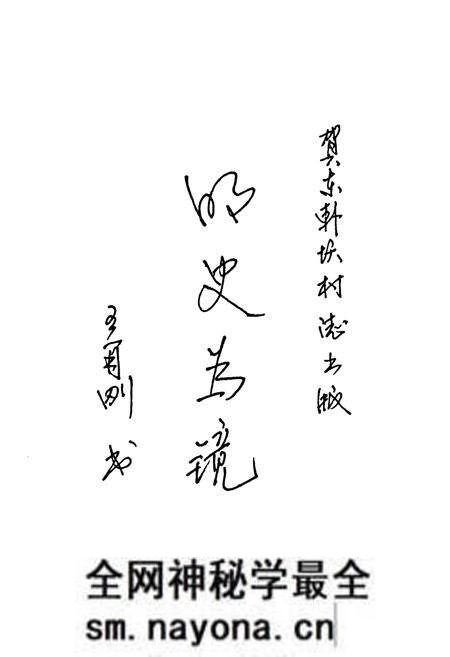 贺东韩村志出版
明史为镜
王刚 书
全网神秘学最全
sm.nayona.cn